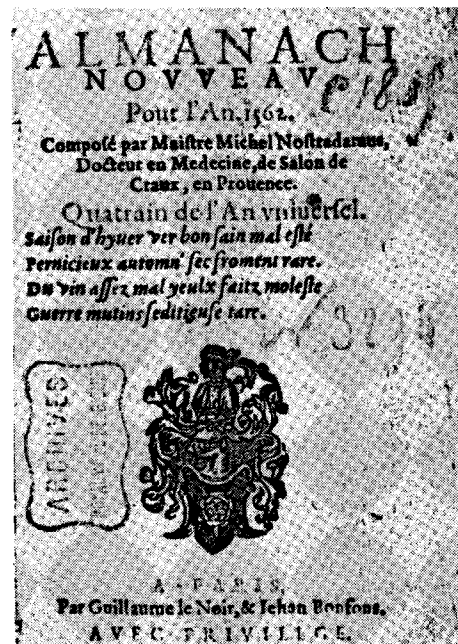 ALMANACH
NOVVEAV
Pour l'An.1562.
Composé par Maistre Michel Nostradamus,
Docteur en Medecine,de Salon de
Craux, en Prouence.
Quatrain de l'An vniuersel.
Saison d'hyuer ver bon sain mal esté
Pernicieux automn' sec froment rare.
Du vin assez mal yeulx faitz moleste
Guerre mutins seditieuse tare.
ARCHIVES
A PARIS,
Par Guillaume le Noir,& Iehan Bonfons,
AVEC PRIVILEGE.